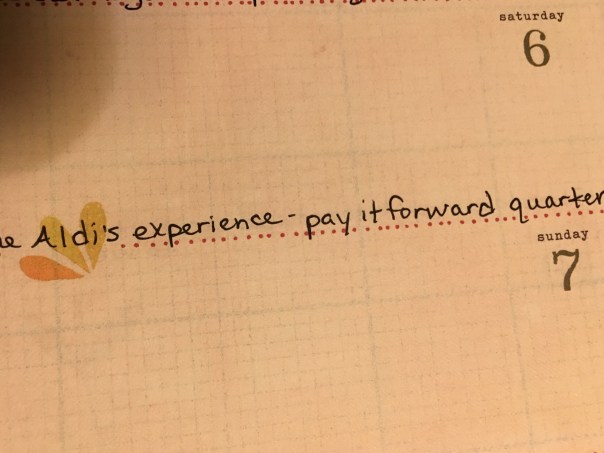 saturday
6
Aldi's experience - pay it forward quarter
sunday
7